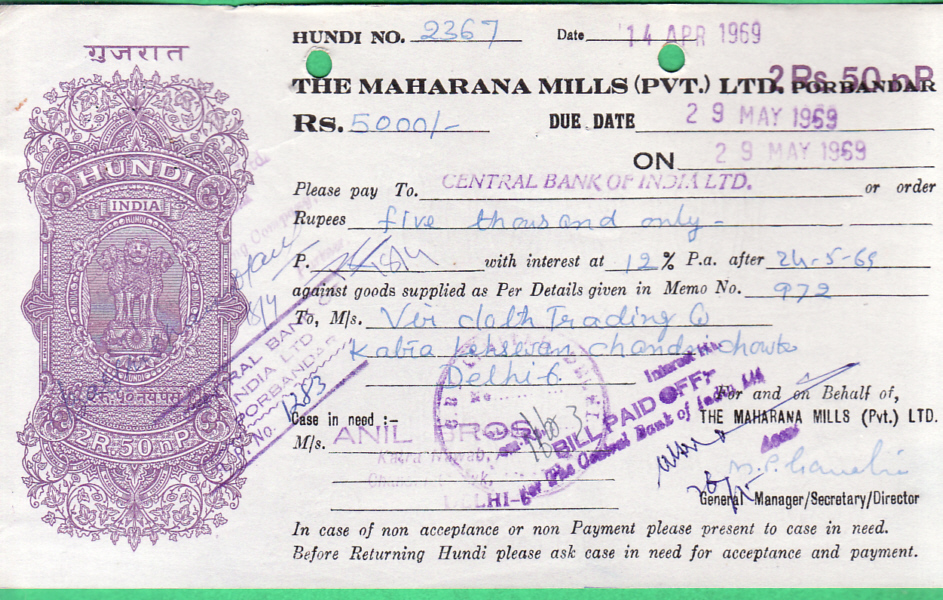 गुजरात
HUNDI NO. 2367 Date 14 APR 1969
THE MAHARANA MILLS (PVT.) LTD. PORBANDAR
2 Rs. 50 nP
Rs. 5000/- DUE DATE 29 MAY 1969
ON 29 MAY 1969
Please pay To. CENTRAL BANK OF INDIA LTD. or order
Rupees five thousand only-
P. with interest at 12 % P.a. after 24-5-69
against goods supplied as Per Details given in Memo No. 972
To, M/s. Vir cloth Trading Co
Katra Lehswan Chandni chowk
Delhi-6
For and on Behalf of,
THE MAHARANA MILLS (Pvt.) LTD.
Case in need :-
M/s. ANIL BROS
DELHI-6
General Manager/Secretary/Director
In case of non acceptance or non Payment please present to case in need.
Before Returning Hundi please ask case in need for acceptance and payment.
HUNDI
INDIA
2R.50nP
CENTRAL BANK OF
INDIA LTD
PORBANDAR
No. 1283
BILL PAID OFF
for The Central Bank of India, Ltd